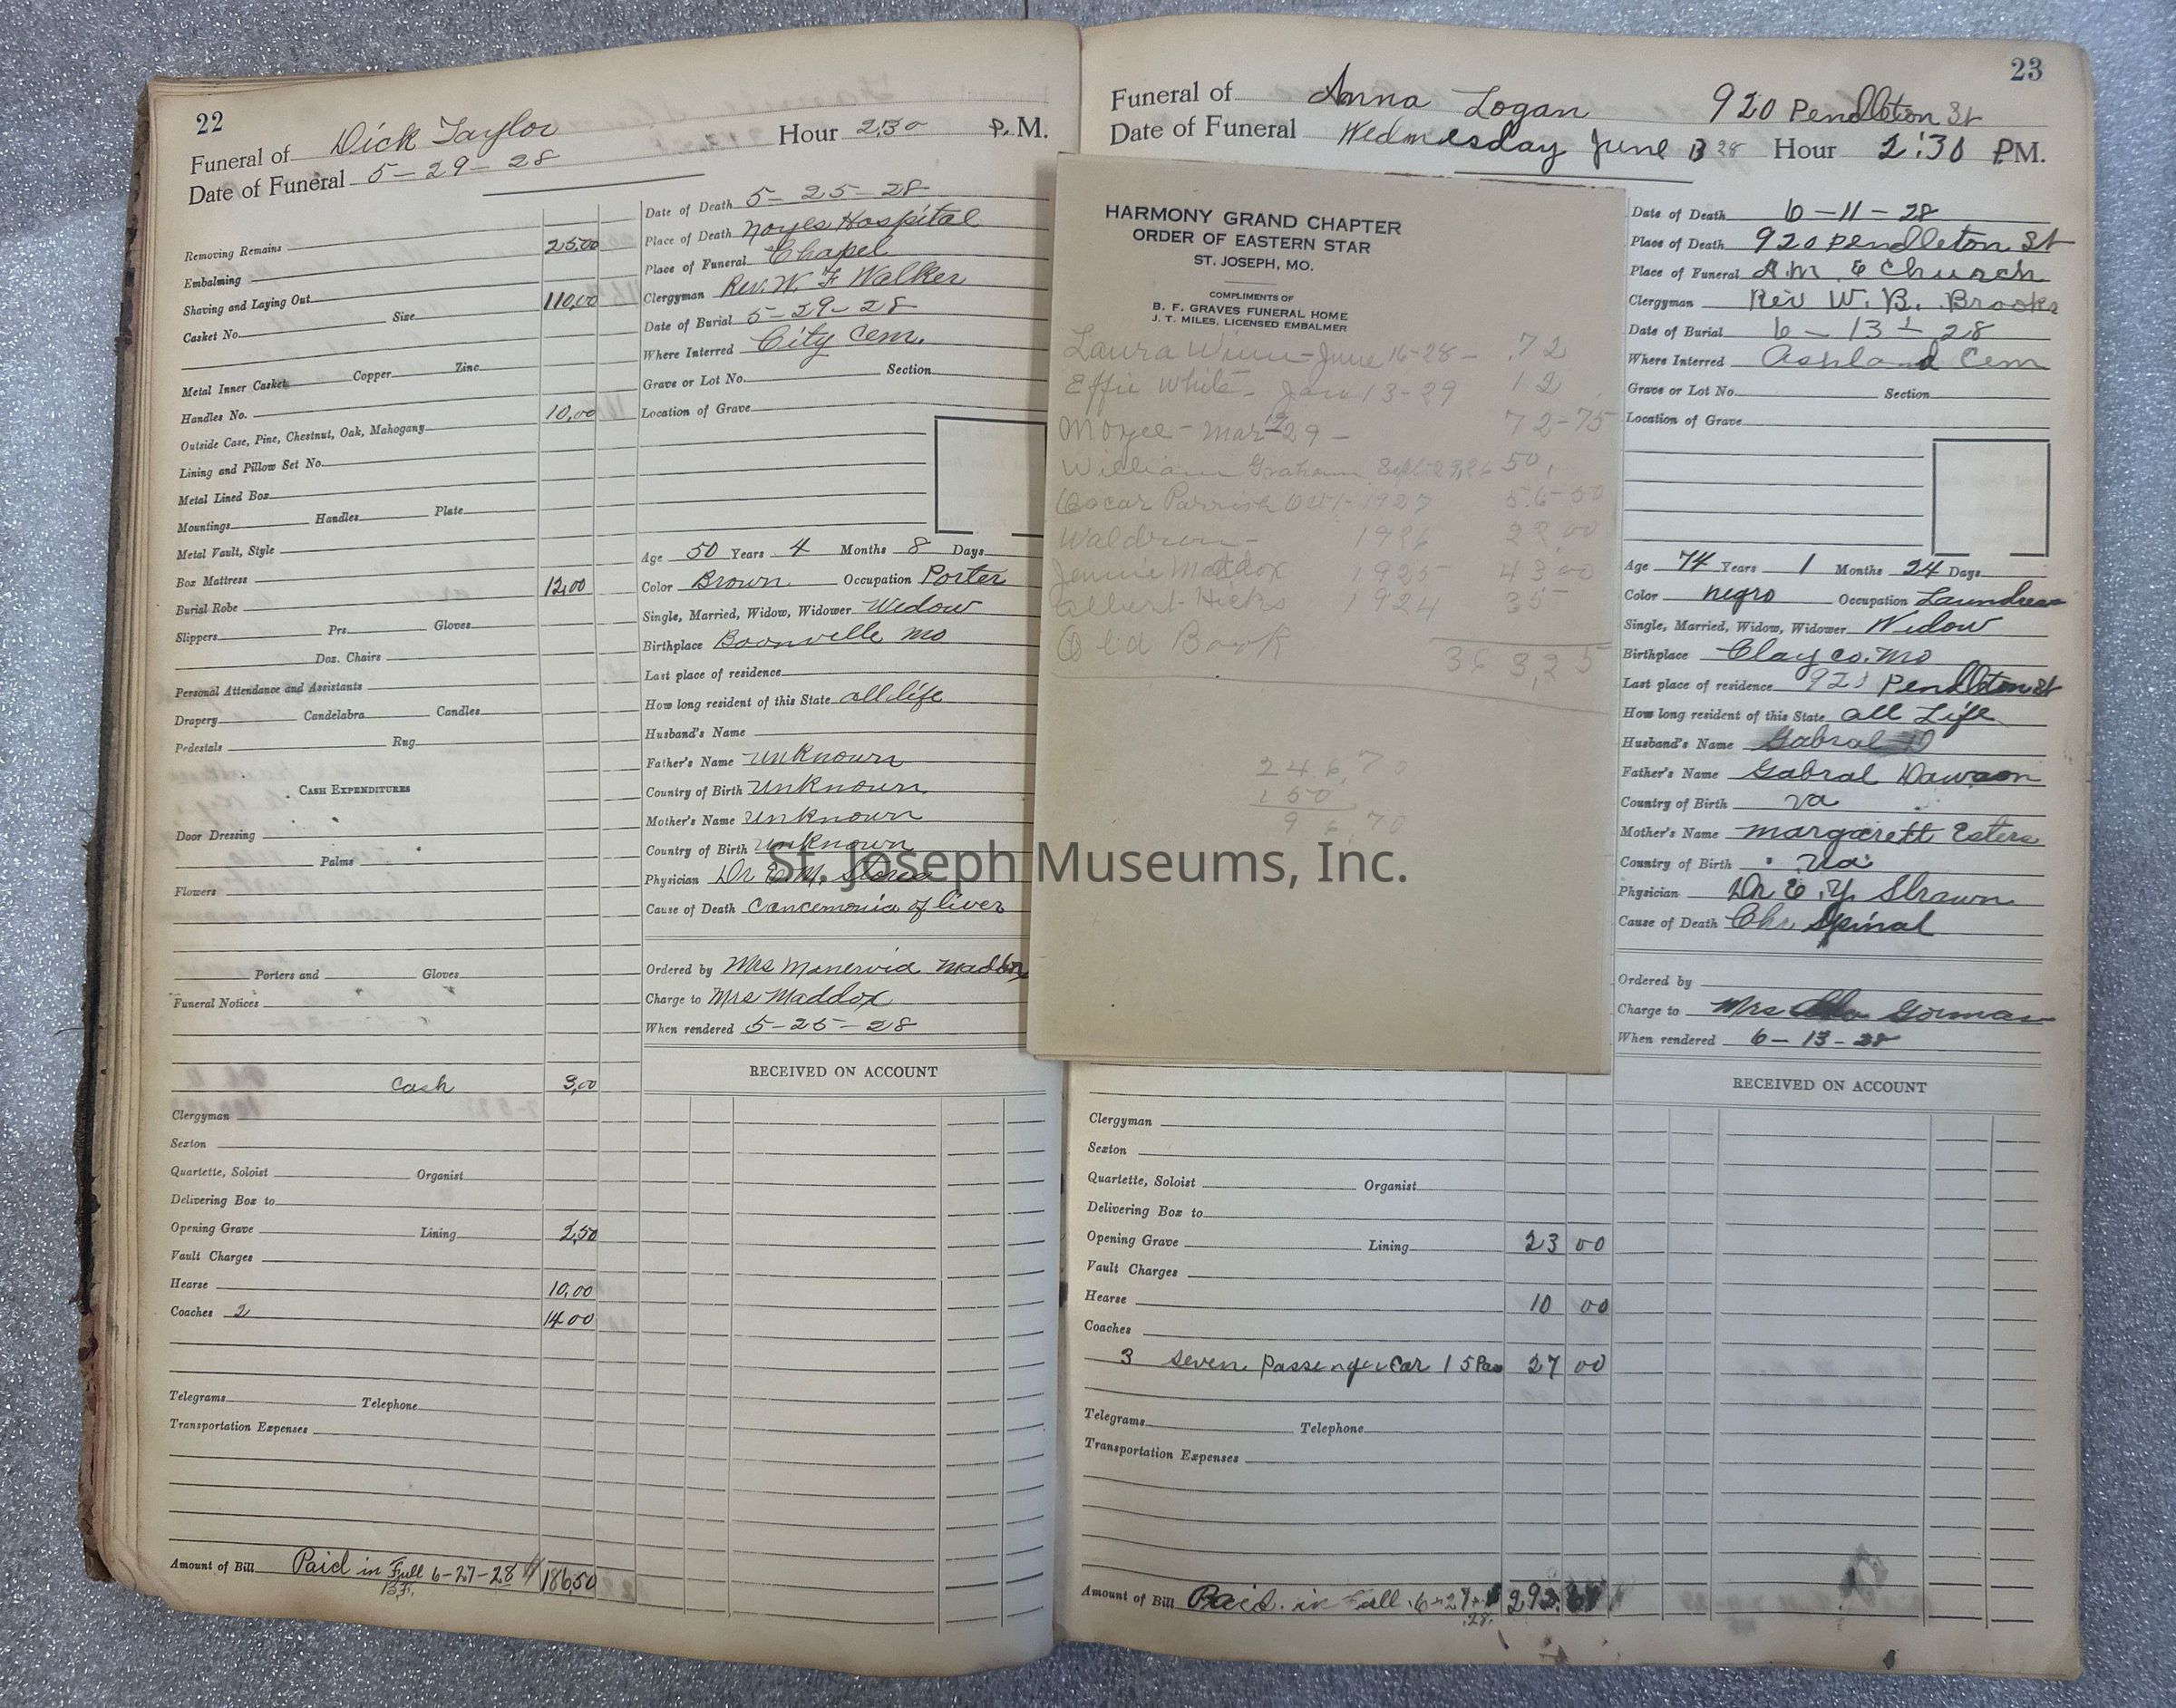 22
Funeral of Dick Taylor
Date of Funeral 5-29-28 Hour 2:30 P. M.
Removing Remains
Embalming 25.00
Shaving and Laying Out
Casket No. Size 110.00
Metal Inner Casket Copper Zinc
Handles No.
Outside Case, Pine, Chestnut, Oak, Mahogany 10.00
Lining and Pillow Set No.
Metal Lined Box
Mountings Handles Plate
Metal Vault, Style
Box Mattress
Burial Robe 12.00
Slippers Prs. Gloves
Doz. Chairs
Personal Attendance and Assistants
Drapery Candelabra Candles
Pedestals Rug
CASH EXPENDITURES
Door Dressing
Palms
Flowers
Porters and Gloves
Funeral Notices
Cash 3.00
Clergyman
Sexton
Quartette, Soloist Organist
Delivering Box to
Opening Grave Lining 2.50
Vault Charges
Hearse 10.00
Coaches 2 14 00
Telegrams Telephone
Transportation Expenses
Amount of Bill Paid in Full 6-27-28 186.50
B.F.
Date of Death 5-25-28
Place of Death Noyes Hospital
Place of Funeral Chapel
Clergyman Rev. W. F Walker
Date of Burial 5-29-28
Where Interred City Cem.
Grave or Lot No. Section
Location of Grave
Age 50 Years 4 Months 8 Days
Color Brown Occupation Porter
Single, Married, Widow, Widower Widow
Birthplace Boonville Mo
Last place of residence
How long resident of this State all life
Husband's Name
Father's Name unknown
Country of Birth unknown
Mother's Name unknown
Country of Birth unknown
Physician Dr E. M.
Cause of Death of liver
Ordered by Mrs Manervia Maddox
Charge to Mrs Maddox
When rendered 5-25-28
RECEIVED ON ACCOUNT
HARMONY GRAND CHAPTER
ORDER OF EASTERN STAR
ST. JOSEPH, MO.
COMPLIMENTS OF
B. F. GRAVES FUNERAL HOME
J. T. MILES, LICENSED EMBALMER
Laura Winn - June 16-28 - .72
Effie White - Jan 13-29 12
Mar 29 - 72-75
William Graham Sept 50.
Oscar Parrish Oct 1-1927 56-50
1926 22.00
Jennie Maddox 1925 43 00
Albert Hicks 1924 35
Old Book 363,25
246,70
150
96,70
23
Funeral of Anna Logan 920 Pendleton St
Date of Funeral Wednesday June 13 28 Hour 2:30 P.M.
Date of Death 6-11-28
Place of Death 920 Pendleton St
Place of Funeral A.M. E Church
Clergyman Rev W. B. Brooks
Date of Burial 6-13-28
Where Interred Ashland Cem
Grave or Lot No. Section
Location of Grave
Age 74 Years 1 Months 24 Days
Color negro Occupation Laundress
Single, Married, Widow, Widower Widow
Birthplace Clay co. Mo
Last place of residence 920 Pendleton St
How long resident of this State all Life
Husband's Name Gabral D
Father's Name Gabral Dawson
Country of Birth va
Mother's Name margarett Esters
Country of Birth va
Physician Dr E. Y. Strawn
Cause of Death Chr. Spinal
Ordered by
Charge to Mrs Gorman
When rendered 6-13-28
RECEIVED ON ACCOUNT
Clergyman
Sexton
Quartette, Soloist Organist
Delivering Box to
Opening Grave Lining 23 00
Vault Charges
Hearse 10 00
Coaches
3 seven passenger car 1 5 Pas 27 00
Telegrams Telephone
Transportation Expenses
Amount of Bill Paid in Full 6-27- 293.
28.
St. Joseph Museums, Inc.